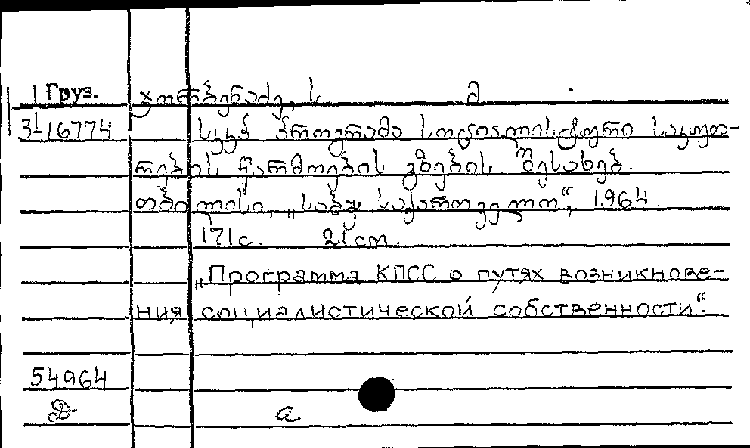 Груз. ჯორბენაძე, ს. მ.
3-16774 სკკპ პროგრამა სოციალისტური საკუთ-
რების წარმოების გზების შესახებ.
თბილისი, „საბჭ. საქართველო“, 1964
171 с. 21 см.
„Программа КПСС о путях возникнове-
ния социалистической собственности“.
54964
а